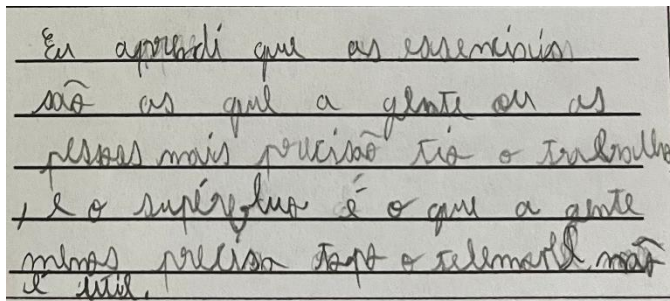 Eu aprendi que as essenciais
são as que a gente ou as
pessoas mais precisão tio o trabalho
, e o supérfluo é o que a gente
menos precisa tipo o telemovel não
é util.